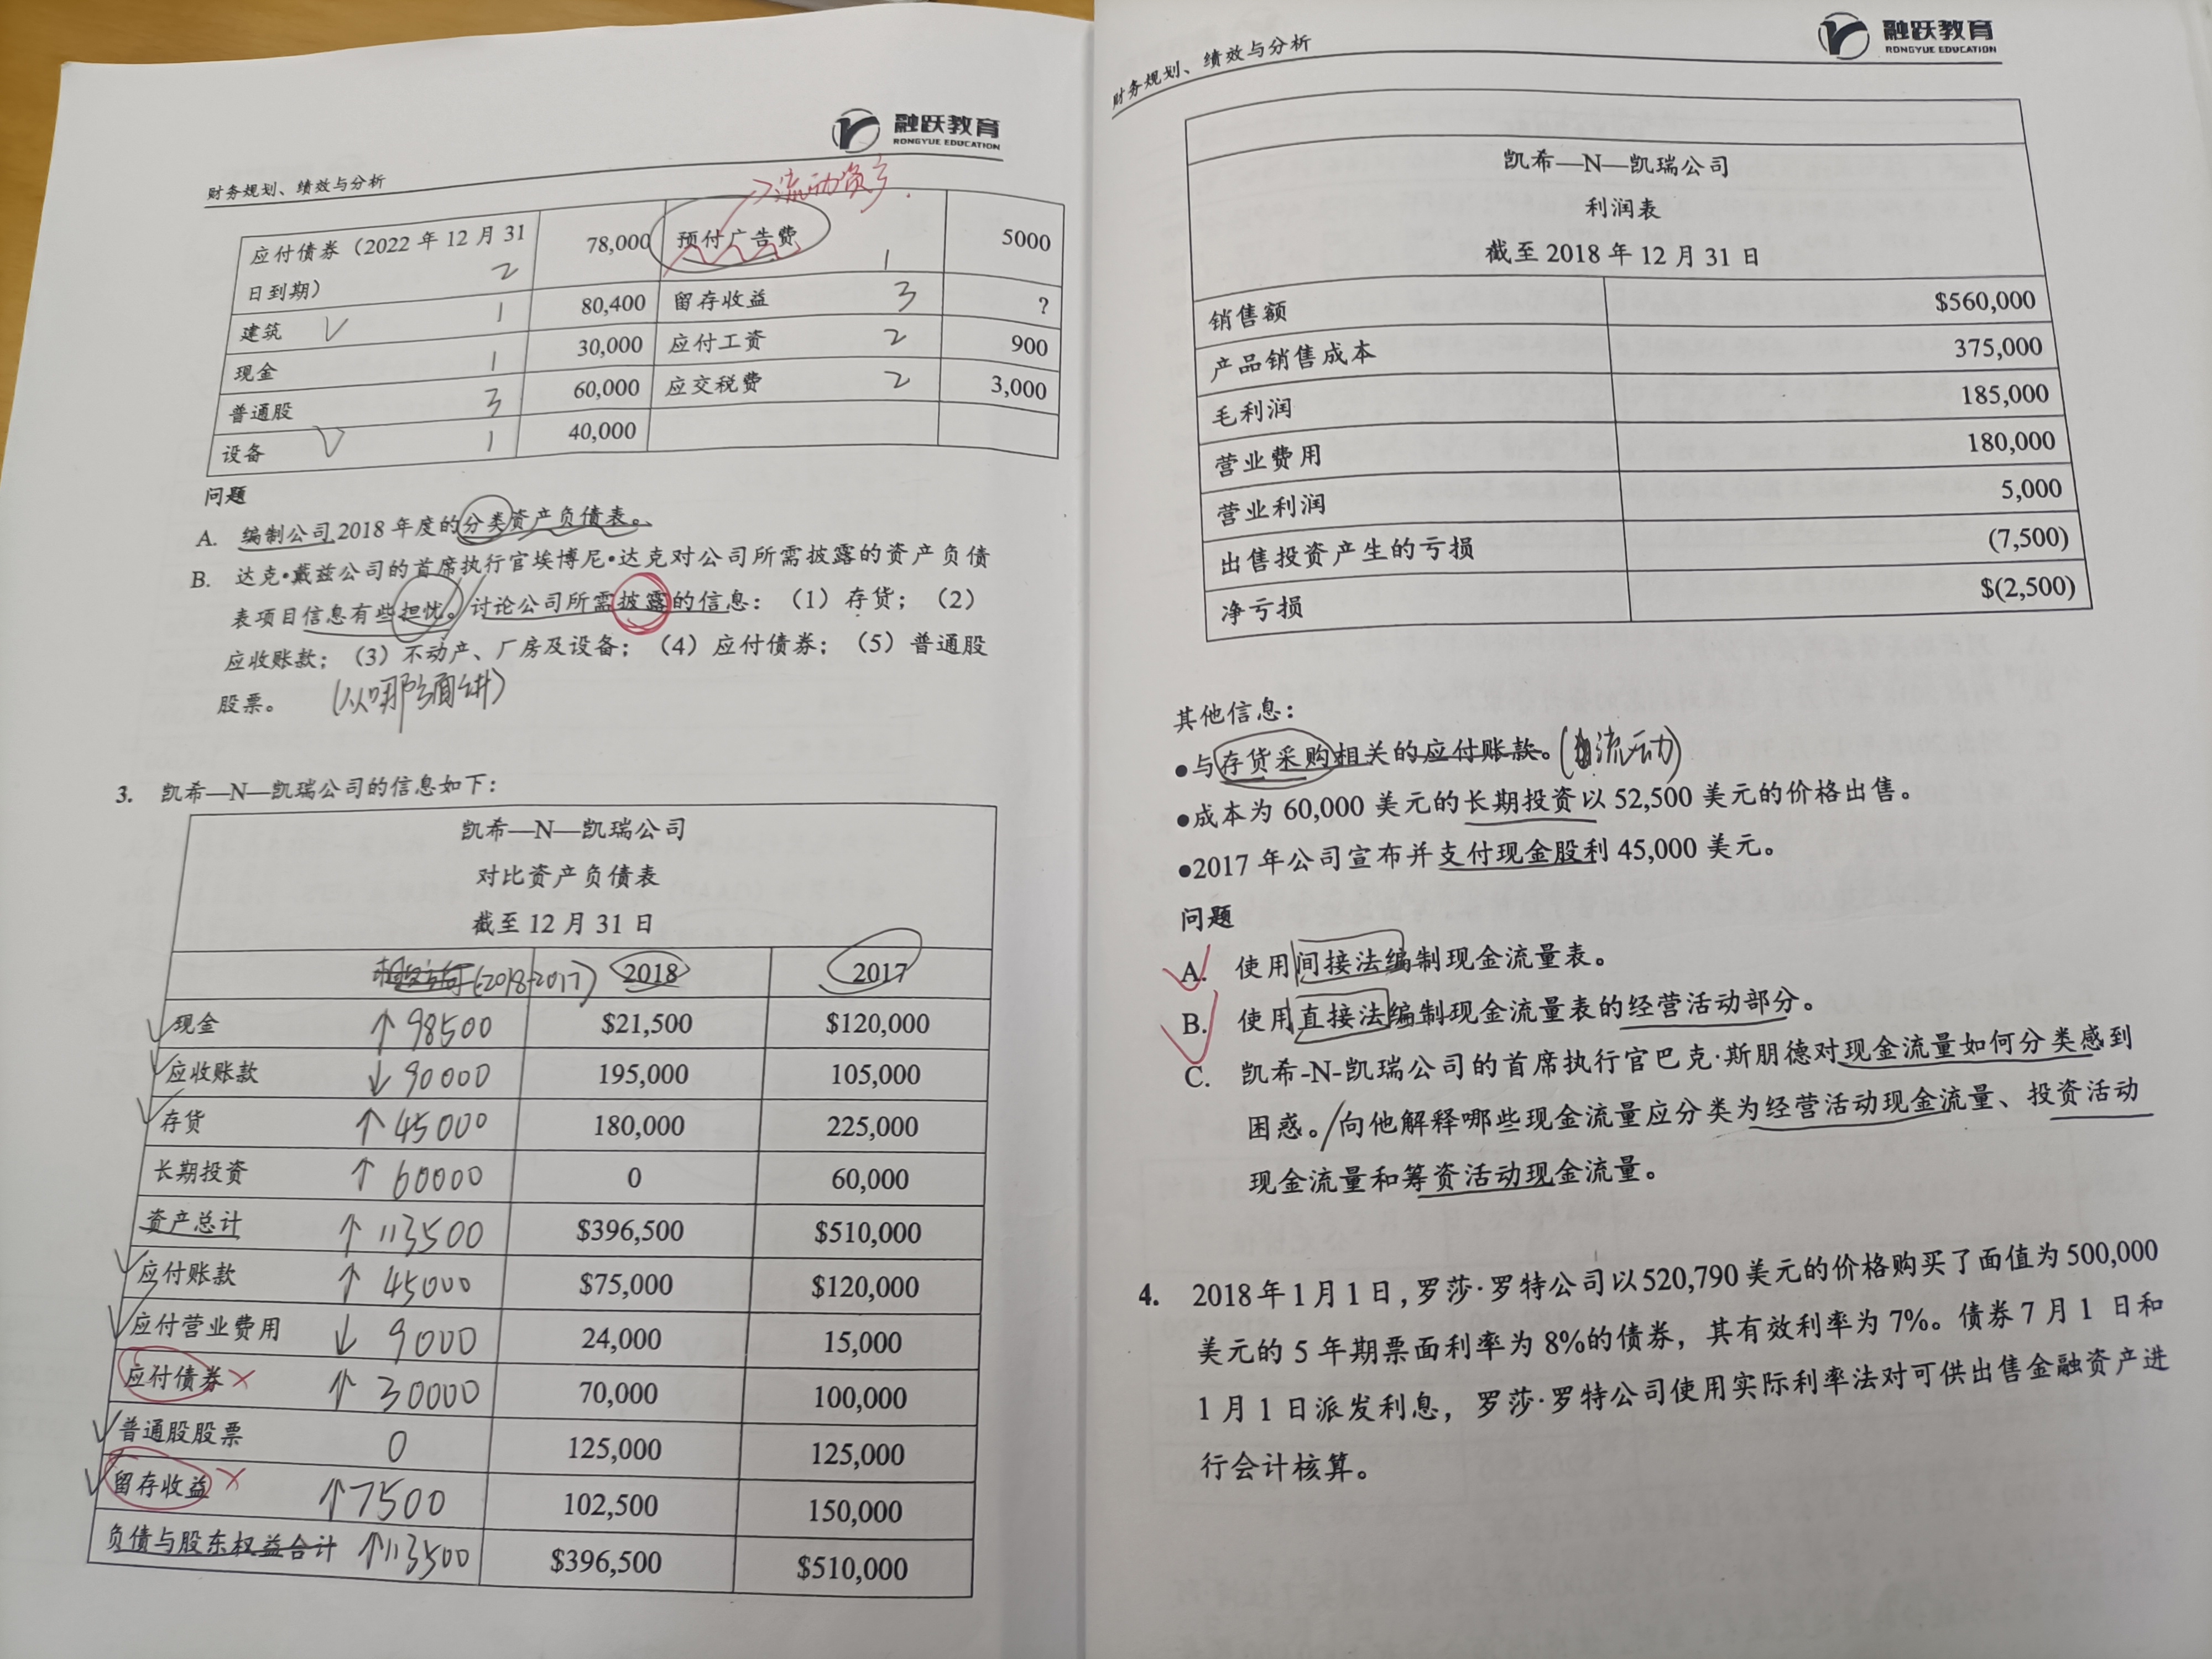 融跃教育
RONGYUE EDUCATION
财务规划、绩效与分析
>流动资产.
应付债券（2022 年 12 月 31 日到期） 2 78,000 预付广告费 1 5000
建筑 √ 1 80,400 留存收益 3 ?
现金 1 30,000 应付工资 2 900
普通股 3 60,000 应交税费 2 3,000
设备 √ 1 40,000
问题
A. 编制公司 2018 年度的分类资产负债表。
B. 达克•戴兹公司的首席执行官埃博尼•达克对公司所需披露的资产负债
表项目信息有些担忧。讨论公司所需披露的信息：（1）存货；（2）
应收账款；（3）不动产、厂房及设备；（4）应付债券；（5）普通股
股票。 (从哪方面讲)
3. 凯希—N—凯瑞公司的信息如下：
凯希—N—凯瑞公司
对比资产负债表
截至 12 月 31 日
(2018-2017) 2018 2017
√ 现金 ↑ 98500 $21,500 $120,000
√ 应收账款 ↓ 90000 195,000 105,000
√ 存货 ↑ 45000 180,000 225,000
长期投资 ↑ 60000 0 60,000
资产总计 ↑ 113500 $396,500 $510,000
√ 应付账款 ↑ 45000 $75,000 $120,000
√ 应付营业费用 ↓ 9000 24,000 15,000
应付债券 × ↑ 30000 70,000 100,000
√ 普通股股票 0 125,000 125,000
√ 留存收益 × ↑7500 102,500 150,000
负债与股东权益合计 ↑113500 $396,500 $510,000
财务规划、绩效与分析
融跃教育
RONGYUE EDUCATION
凯希—N—凯瑞公司
利润表
截至 2018 年 12 月 31 日
销售额 $560,000
产品销售成本 375,000
毛利润 185,000
营业费用 180,000
营业利润 5,000
出售投资产生的亏损 (7,500)
净亏损 $(2,500)
其他信息：
●与存货采购相关的应付账款。(流动)
●成本为 60,000 美元的长期投资以 52,500 美元的价格出售。
●2017 年公司宣布并支付现金股利 45,000 美元。
问题
√ A. 使用间接法编制现金流量表。
√ B. 使用直接法编制现金流量表的经营活动部分。
C. 凯希-N-凯瑞公司的首席执行官巴克·斯朋德对现金流量如何分类感到
困惑。/向他解释哪些现金流量应分类为经营活动现金流量、投资活动
现金流量和筹资活动现金流量。
4. 2018 年 1 月 1 日，罗莎·罗特公司以 520,790 美元的价格购买了面值为 500,000
美元的 5 年期票面利率为 8%的债券，其有效利率为 7%。债券 7 月 1 日和
1 月 1 日派发利息，罗莎·罗特公司使用实际利率法对可供出售金融资产进
行会计核算。